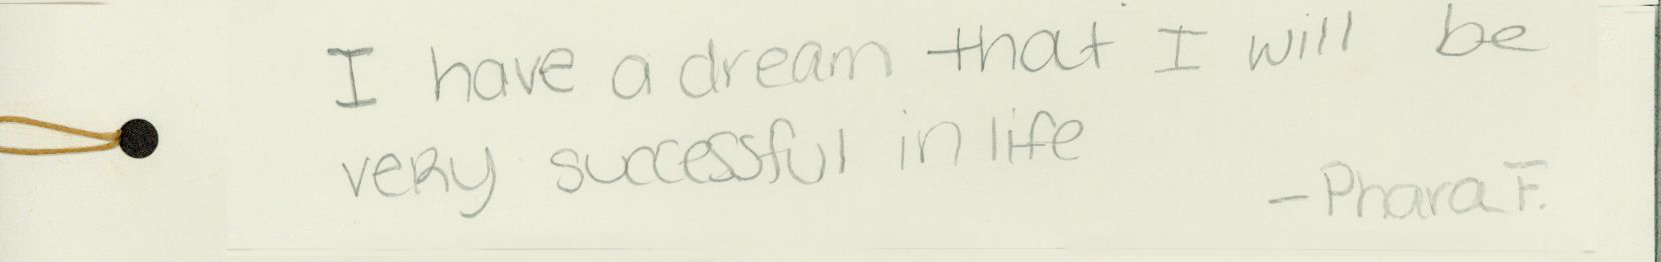 I have a dream that I will be
very successful in life
-Phara F.